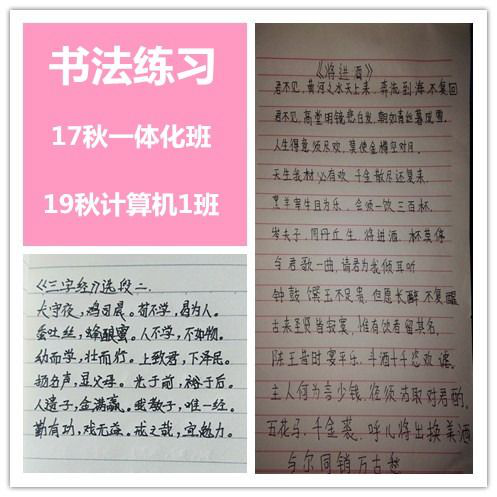 书法练习
17秋一体化班
19秋计算机1班
《三字经》选段二
犬守夜,鸡司晨。苟不学,曷为人。
蚕吐丝,蜂酿蜜。人不学,不如物。
幼而学,壮而行。上致君,下泽民。
扬名声,显父母。光于前,裕于后。
人遗子,金满籯。我教子,唯一经。
勤有功,戏无益。戒之哉,宜勉力。
《将进酒》
君不见,黄河之水天上来,奔流到海不复回
君不见,高堂明镜悲白发,朝如青丝暮成雪。
人生得意须尽欢,莫使金樽空对月,
天生我材必有 千金散尽还复来,
烹羊宰牛且为乐,会须一饮三百杯,
岑夫子,丹丘生,将进酒,杯莫停
与君歌一曲,请君为我倾耳听
钟鼓馔玉不足贵,但愿长醉不复醒
古来圣贤皆寂寞,惟有饮者留其名,
陈王昔时宴平乐,斗酒十千恣欢谑。
主人何为言少钱,径须沽取对君酌。
五花马,千金裘,呼儿将出换美酒
与尔同销万古愁